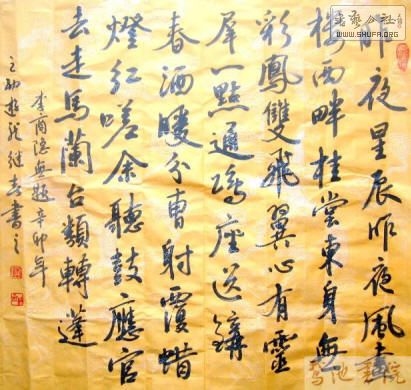 昨夜星辰昨夜風畫
樓西畔桂堂東身無
彩鳳雙飛翼心有靈
犀一點通隔座送鉤
春酒暖分曹射覆蠟
燈紅嗟余聽鼓應官
去走馬蘭台類轉蓬
李商隱無題辛卯年
之初 書之
书艺公社
WWW.SHUFA.ORG